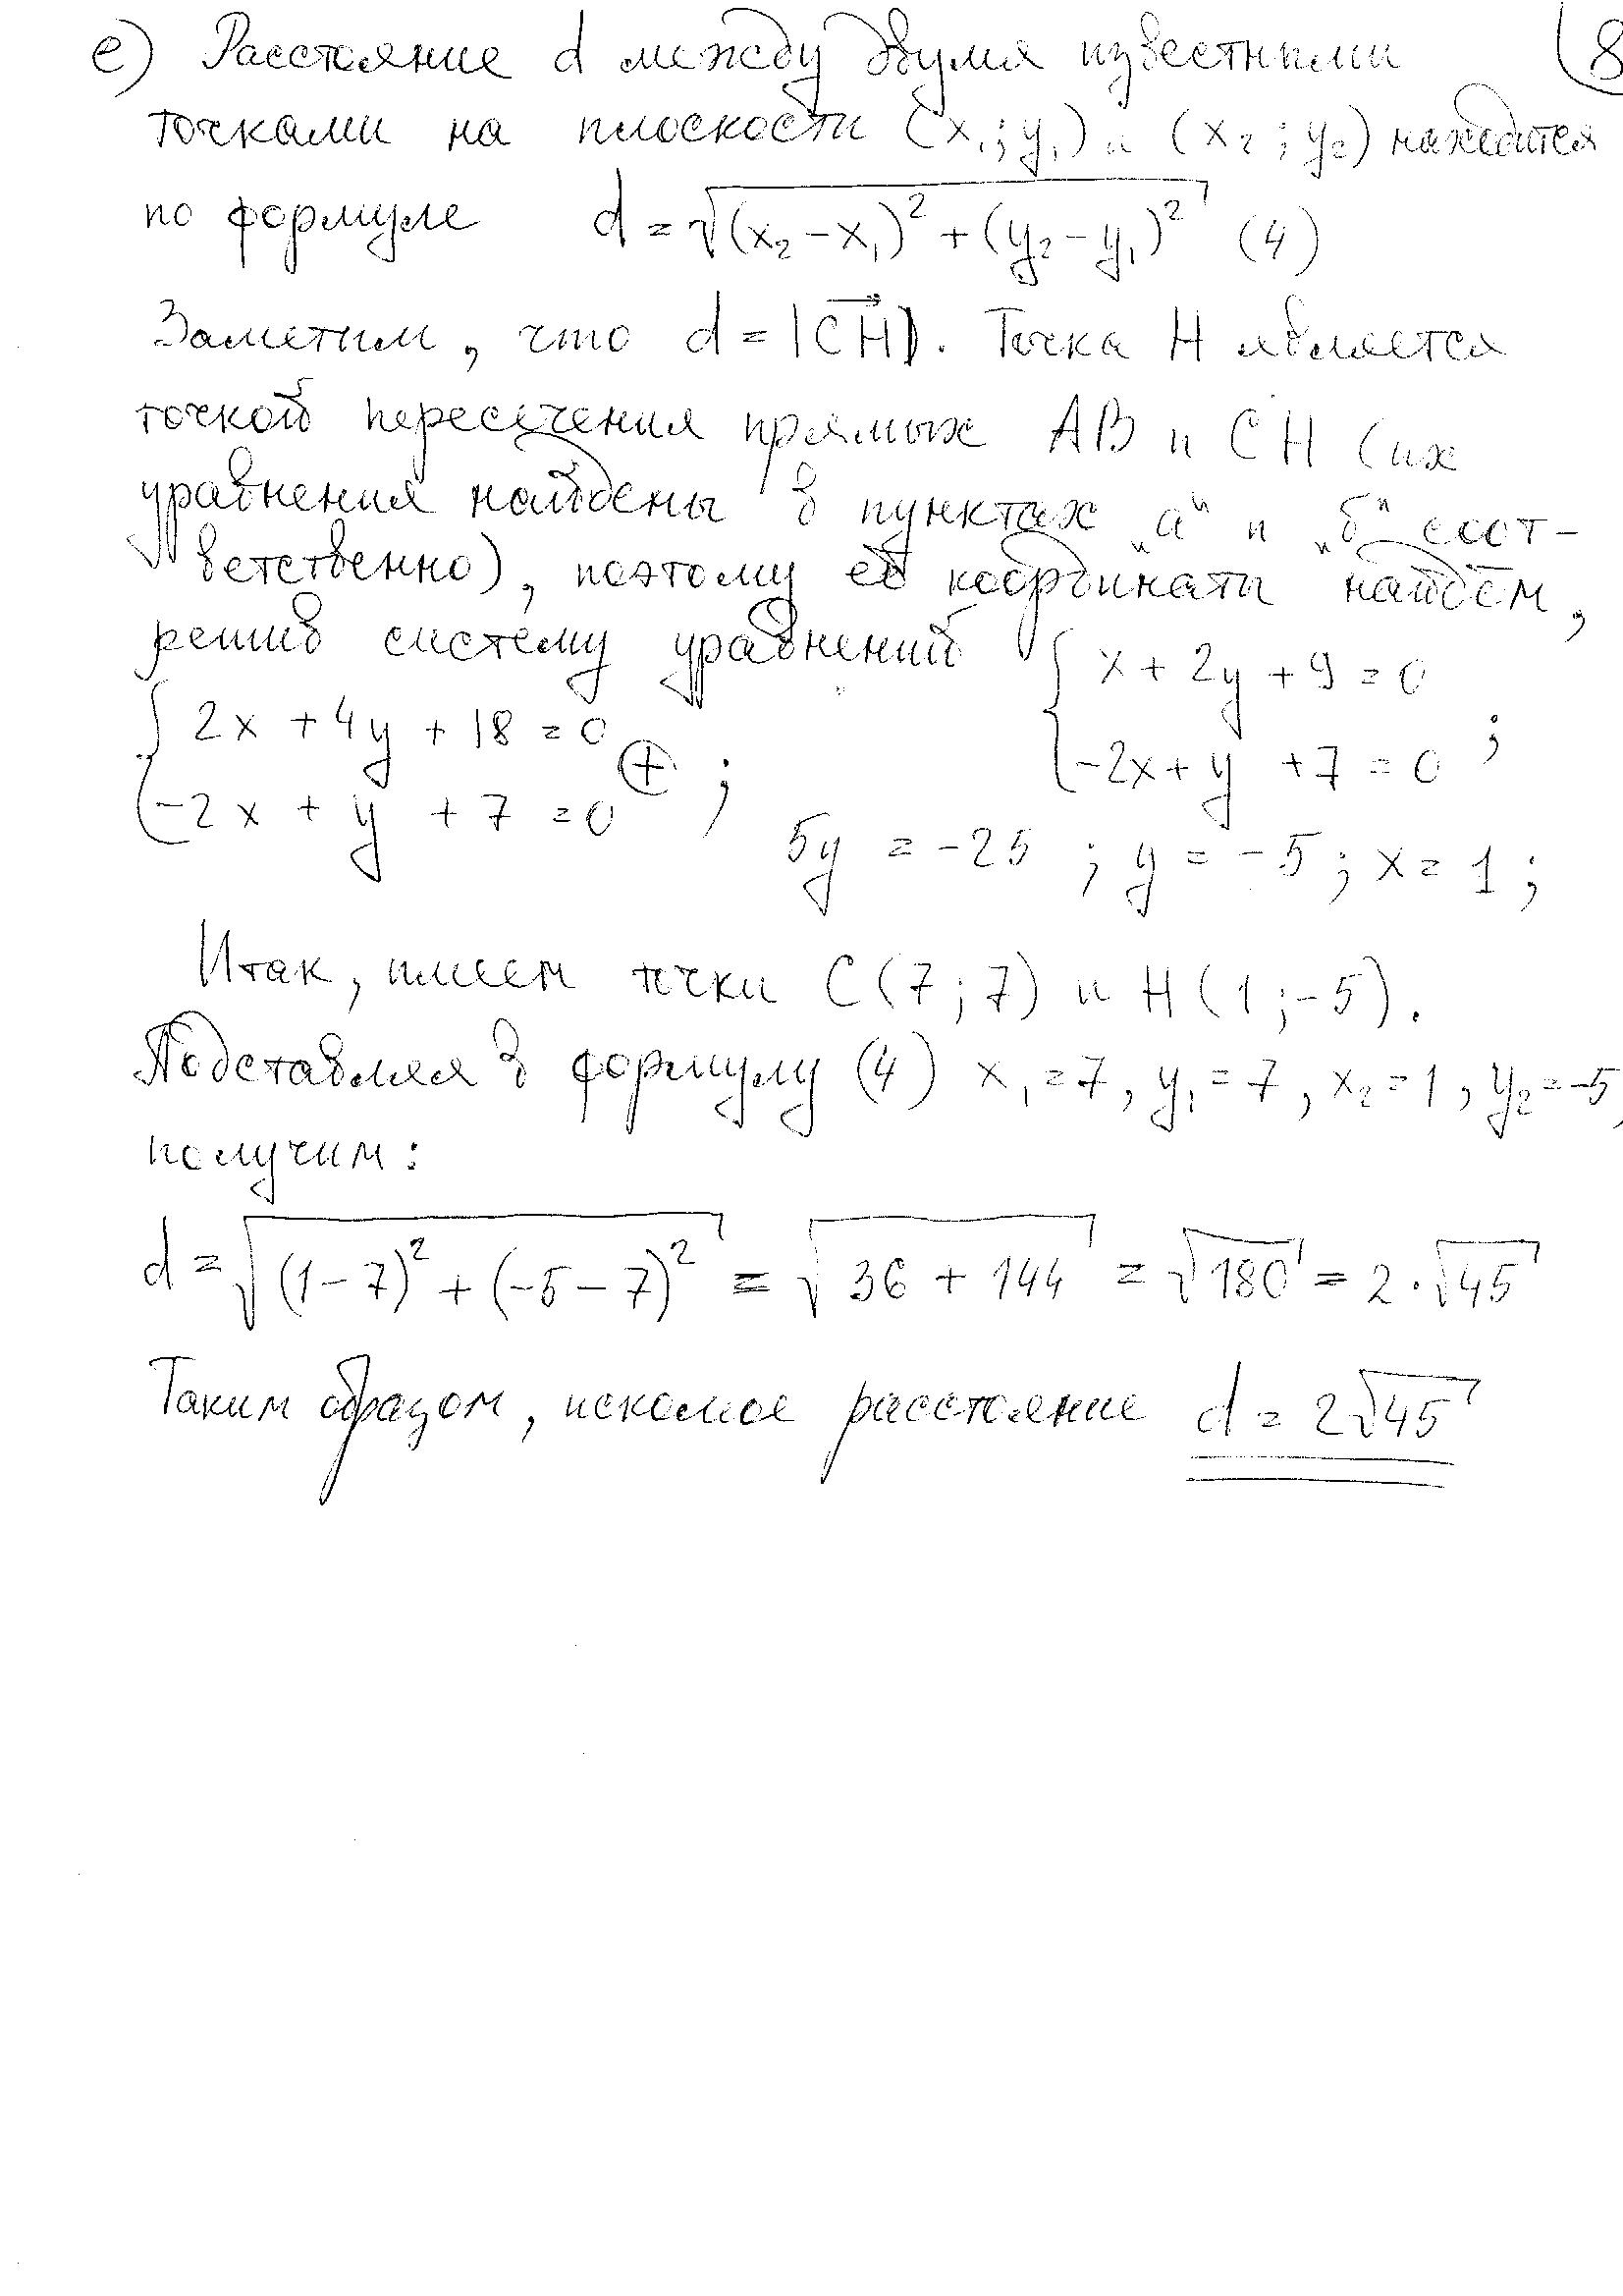 е) Расстояние d между двумя известными (8
точками на плоскости (x₁; y₁) и (x₂; y₂) находится
по формуле d = √((x₂ − x₁)² + (y₂ − y₁)²) (4)
Заметим, что d = |CH|. Точка H является
точкой пересечения прямых AB и CH (их
уравнения найдены в пунктах „а" и „б" соот-
ветственно), поэтому её координаты найдём,
решив систему уравнений { x + 2y + 9 = 0
-2x + y + 7 = 0 ;
{ 2x + 4y + 18 = 0
-2x + y + 7 = 0 ⊕ ;
5y = -25 ; y = -5 ; x = 1 ;
Итак, имеем точки C(7; 7) и H(1; -5).
Подставляя в формулу (4) x₁ = 7, y₁ = 7, x₂ = 1, y₂ = -5,
получим:
d = √((1 − 7)² + (-5 − 7)²) = √(36 + 144) = √180 = 2·√45
Таким образом, искомое расстояние d = 2√45